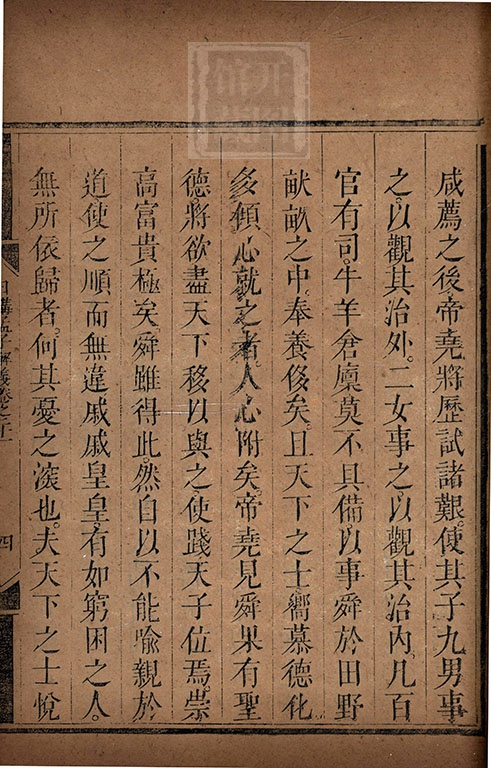 咸薦之後帝堯將歷試諸艱使其子九男事
之以觀其治外二女事之以觀其治內凡百
官有司牛羊倉廩莫不具備以事舜於田野
畎畝之中奉養俻矣且天下之士嚮慕德化
多傾心就之者人心附矣帝堯見舜果有聖
德將欲盡天下移以與之使踐天子位焉崇
高富貴極矣舜雖得此然自以不能喻親於
道使之順而無違戚戚皇皇有如窮困之人
無所依歸者何其憂之深也夫天下之士悅
日講孟子解義卷之二十
四